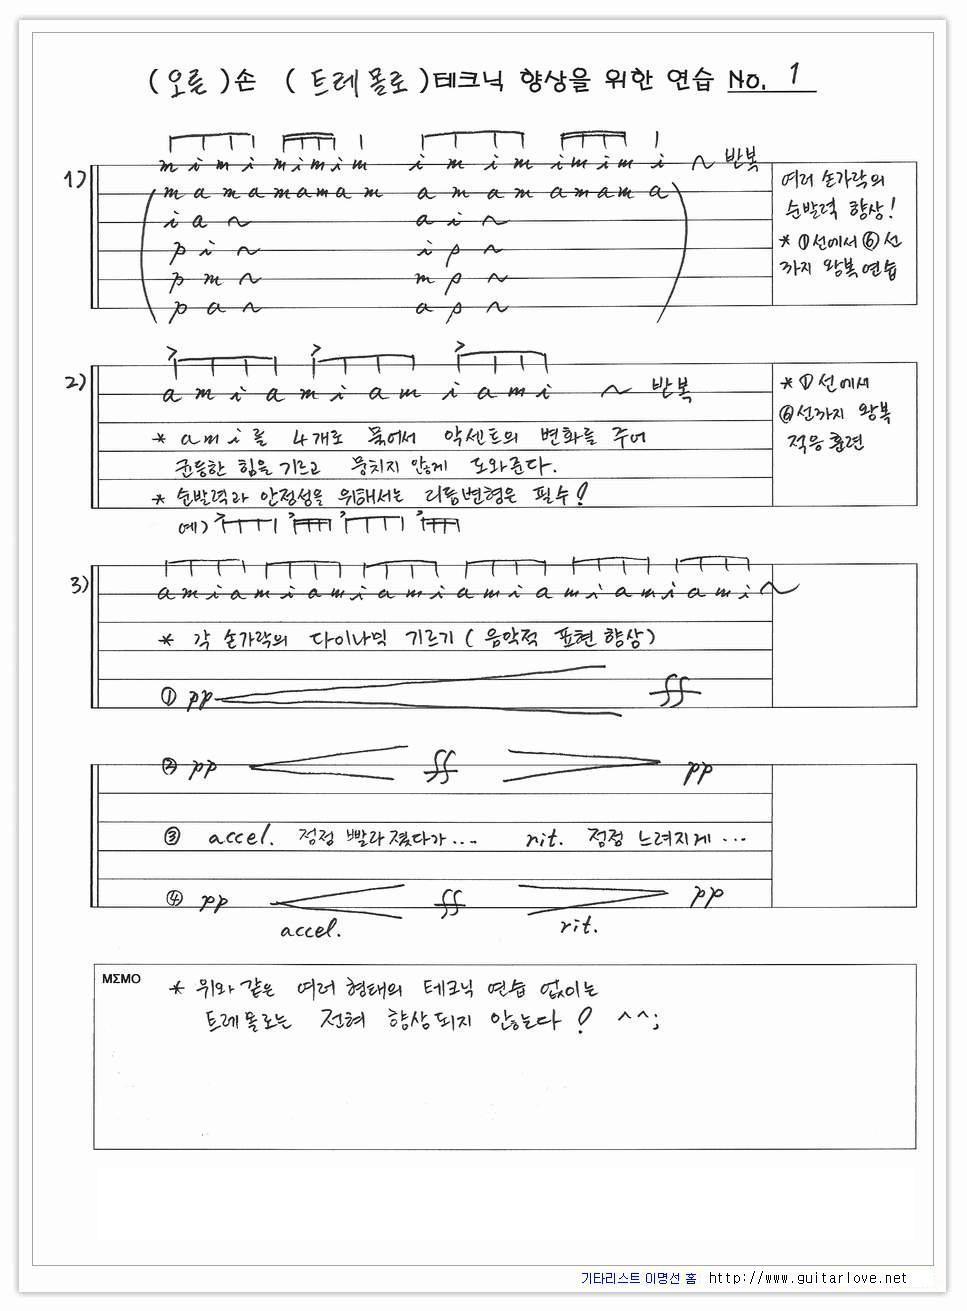 (오른)손 (트레몰로)테크닉 향상을 위한 연습 No. 1
1)
m i m i m i m i m i m i m i m i m i ~ 반복
m a m a m a m a m a m a m a m a m a
i a ~ a i ~
p i ~ i p ~
p m ~ m p ~
p a ~ a p ~
여러 손가락의
순발력 향상!
* ①선에서 ⑥선
까지 왕복연습
2)
a m i a m i a m i a m i ~ 반복
* a m i 를 4개로 묶어서 악센트의 변화를 주어
균등한 힘을 기르고 뭉치지 않게 도와준다.
* 순발력과 안정성을 위해서는 리듬변형은 필수!
예)
* ①선에서
⑥선까지 왕복
적응훈련
3)
a m i a m i a m i a m i a m i a m i a m i a m i ~
* 각 손가락의 다이나믹 기르기 (음악적 표현 향상)
① pp ff
② pp ff pp
③ accel. 점점 빨라졌다가... rit. 점점 느려지게...
④ pp ff pp
accel. rit.
MΣMO
* 위와 같은 여러 형태의 테크닉 연습 없이는
트레몰로는 전혀 향상되지 않는다! ^^;
기타리스트 이명선 홈 http://www.guitarlove.net